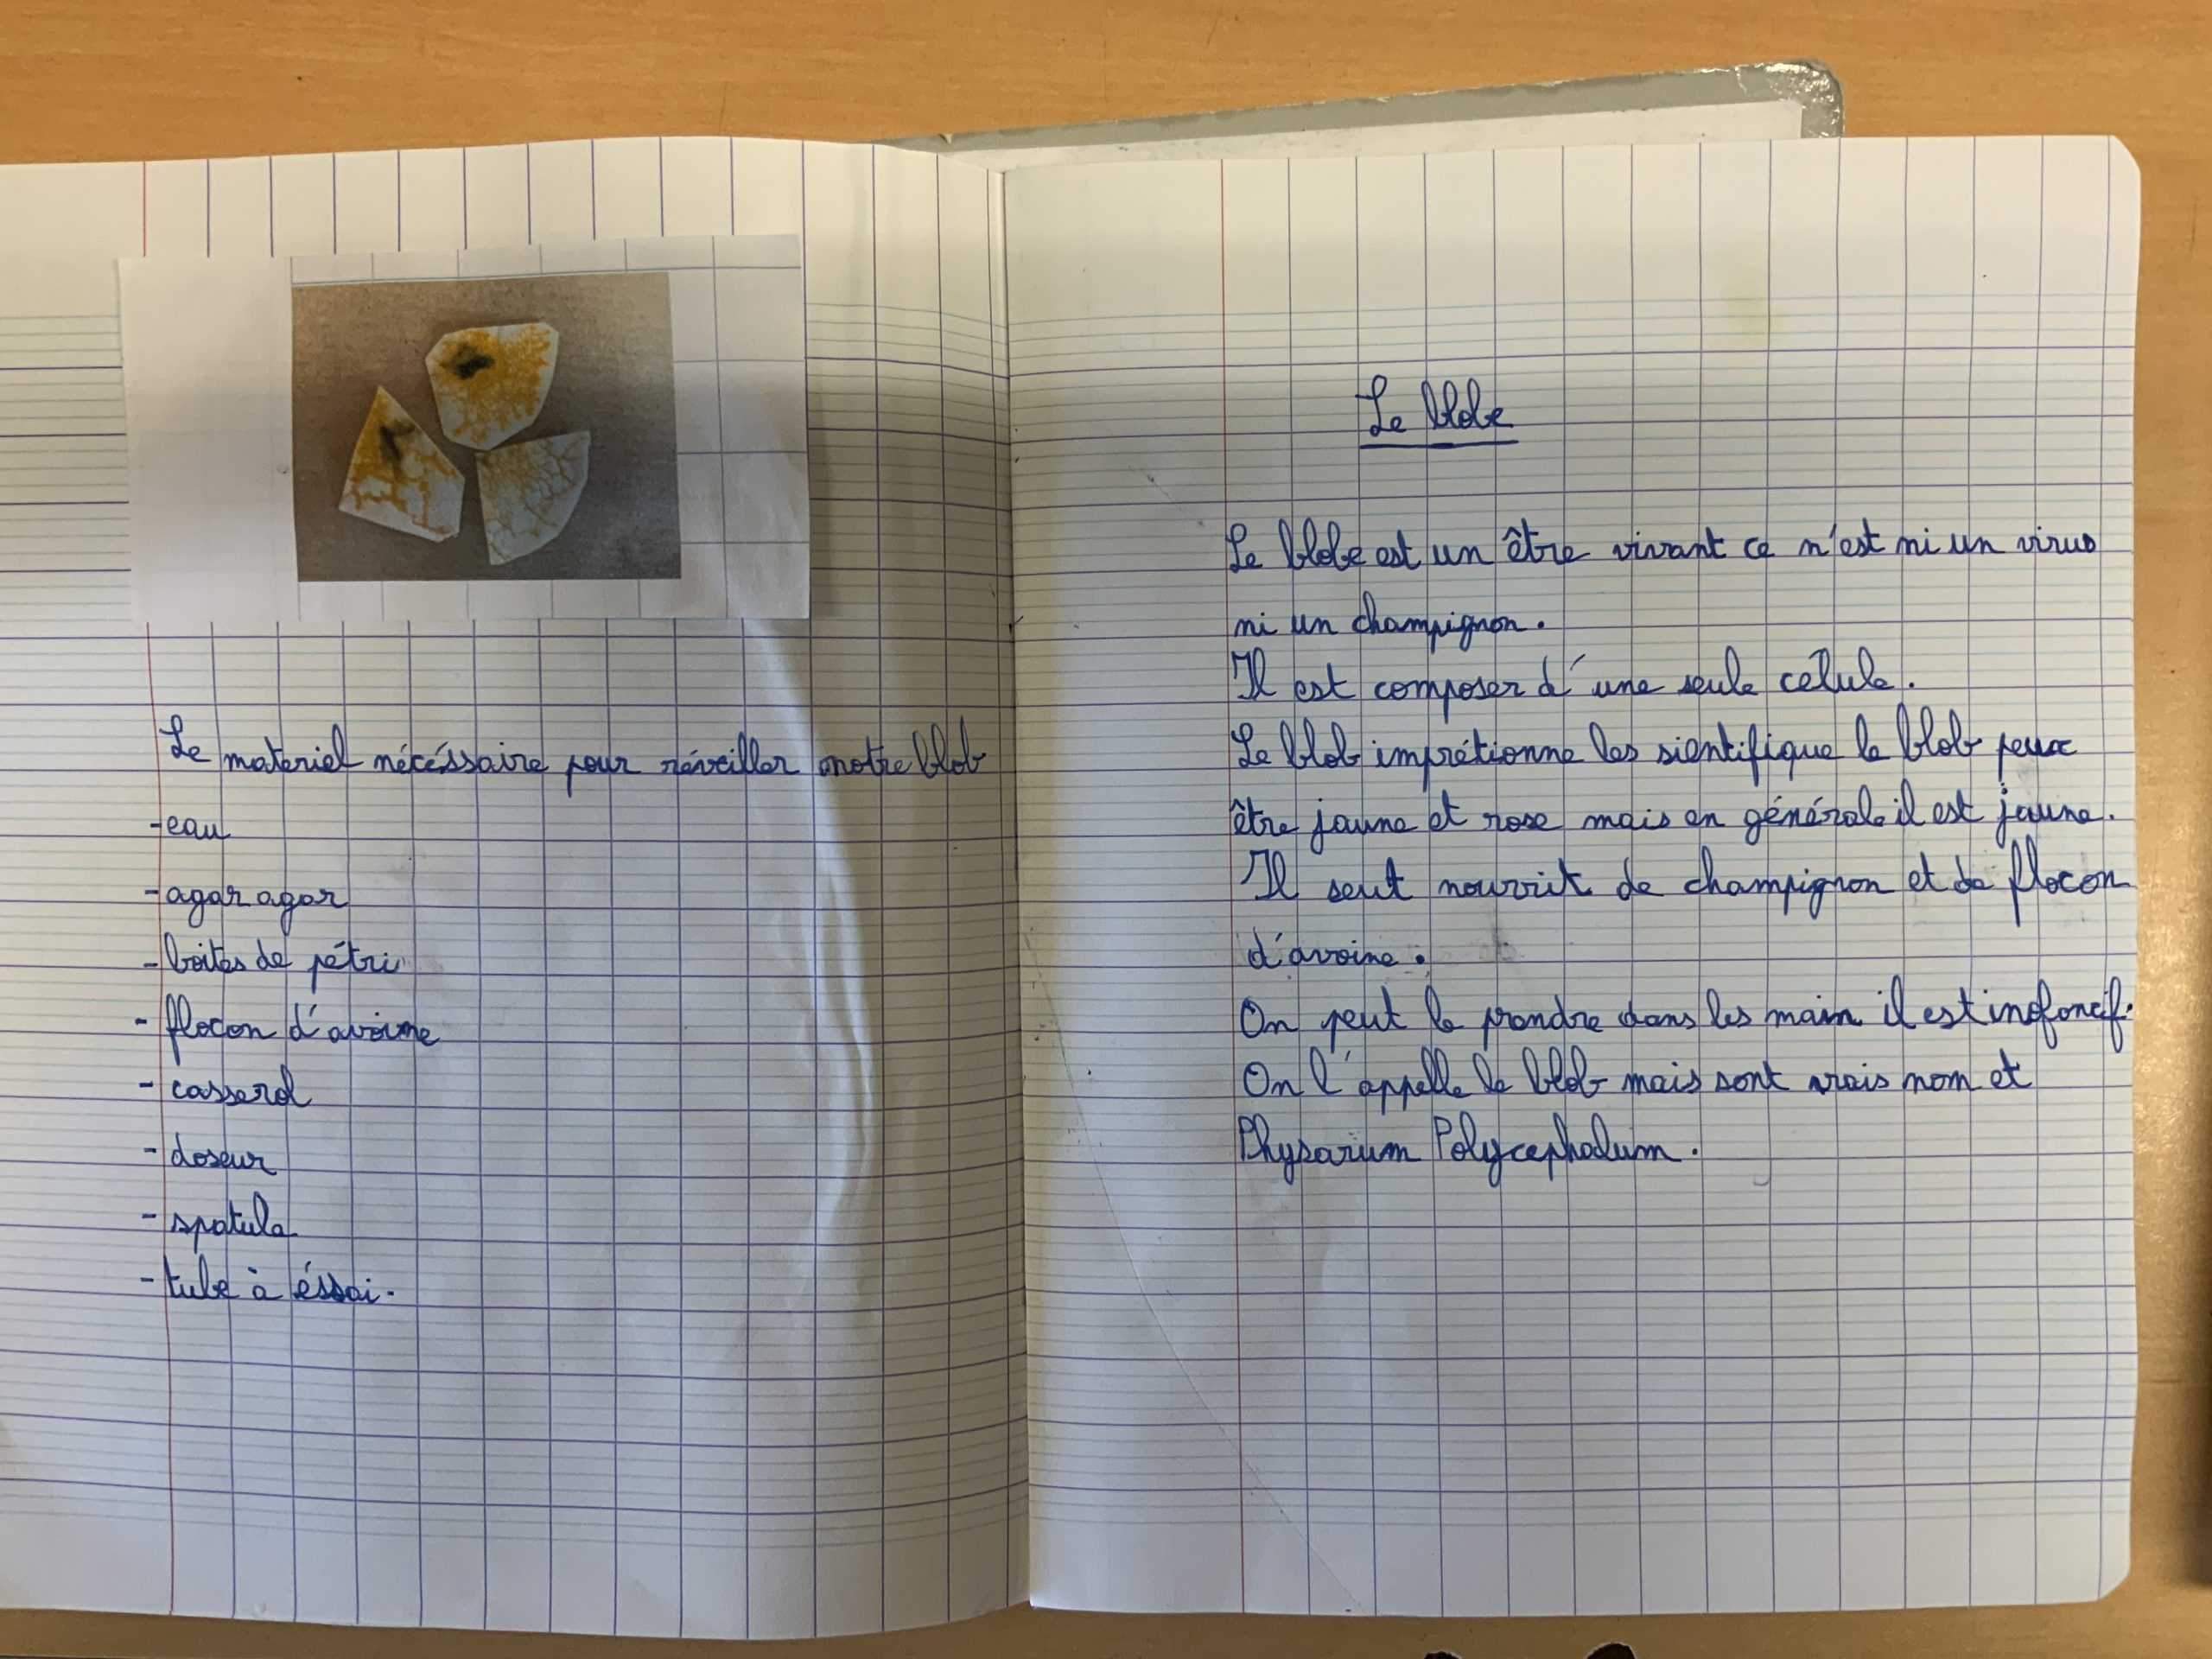 Le materiel nécéssaire pour réveiller notre blob
-eau
-agar agar
-boites de pétri
- flocon d'avoine
- casserol
- doseur
- spatule
- tube à éssai.
Le blobe
Le blobe est un être vivant ce n'est ni un virus
ni un champignon.
Il est composer d'une seule celule.
Le blob imprétionne les sientifique le blob peux
être jaune et rose mais en générale il est jaune.
Il seut nourrit de champignon et de flocon
d'avoine.
On peut le prendre dans les main il est inofencif.
On l'appelle le blob mais sont vrais nom et
Physarum Polycephalum.